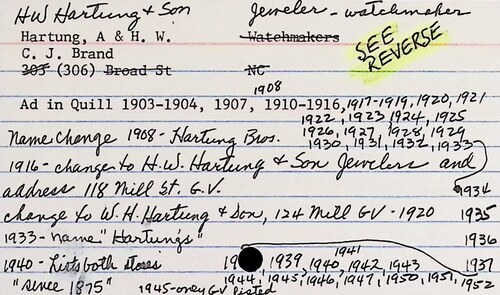 HW Hartung & Son Jeweler - watchmaker
Hartung, A & H. W. Watchmakers
SEE REVERSE
C. J. Brand
303 (306) Broad St NC
1908
Ad in Quill 1903-1904, 1907, 1910-1916, 1917-1919, 1920, 1921
1922, 1923 1924, 1925
Name Change 1908 - Hartung Bros. 1926, 1927, 1928, 1929
1930, 1931, 1932, 1933
1916 - change to H.W. Hartung & Son Jewelers and
address 118 Mill St. G.V. 1934
change to W. H. Hartung & Son, 124 Mill GV - 1920 1935
1933 - name "Hartung's" 1936
1941
1940 - lists both stores 1939, 1940, 1942, 1943 1937
1944, 1945, 1946, 1947, 1950, 1951, 1952
"since 1875" 1945 - only GV listed